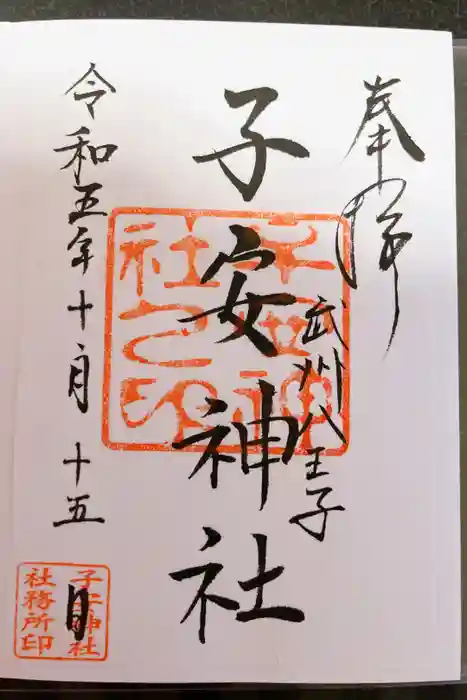 奉拝
武州八王子
子安神社
令和五年十月十五日
子安神社之印
子安神社
社務所印